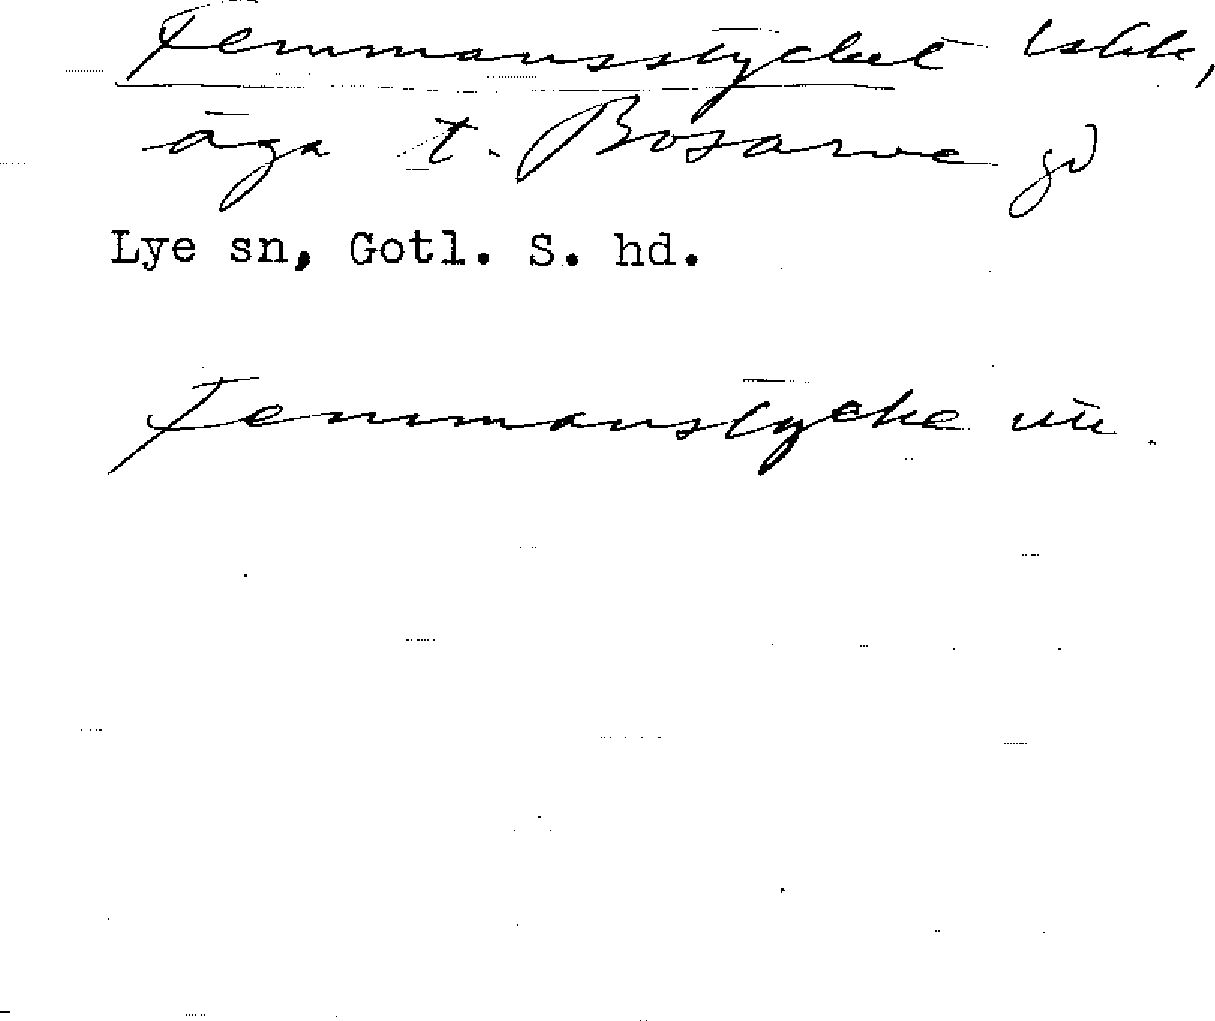 Femmansstycket
äga t. Bosarve gd
Lye sn, Gotl. S. hd.
Femmanstycke